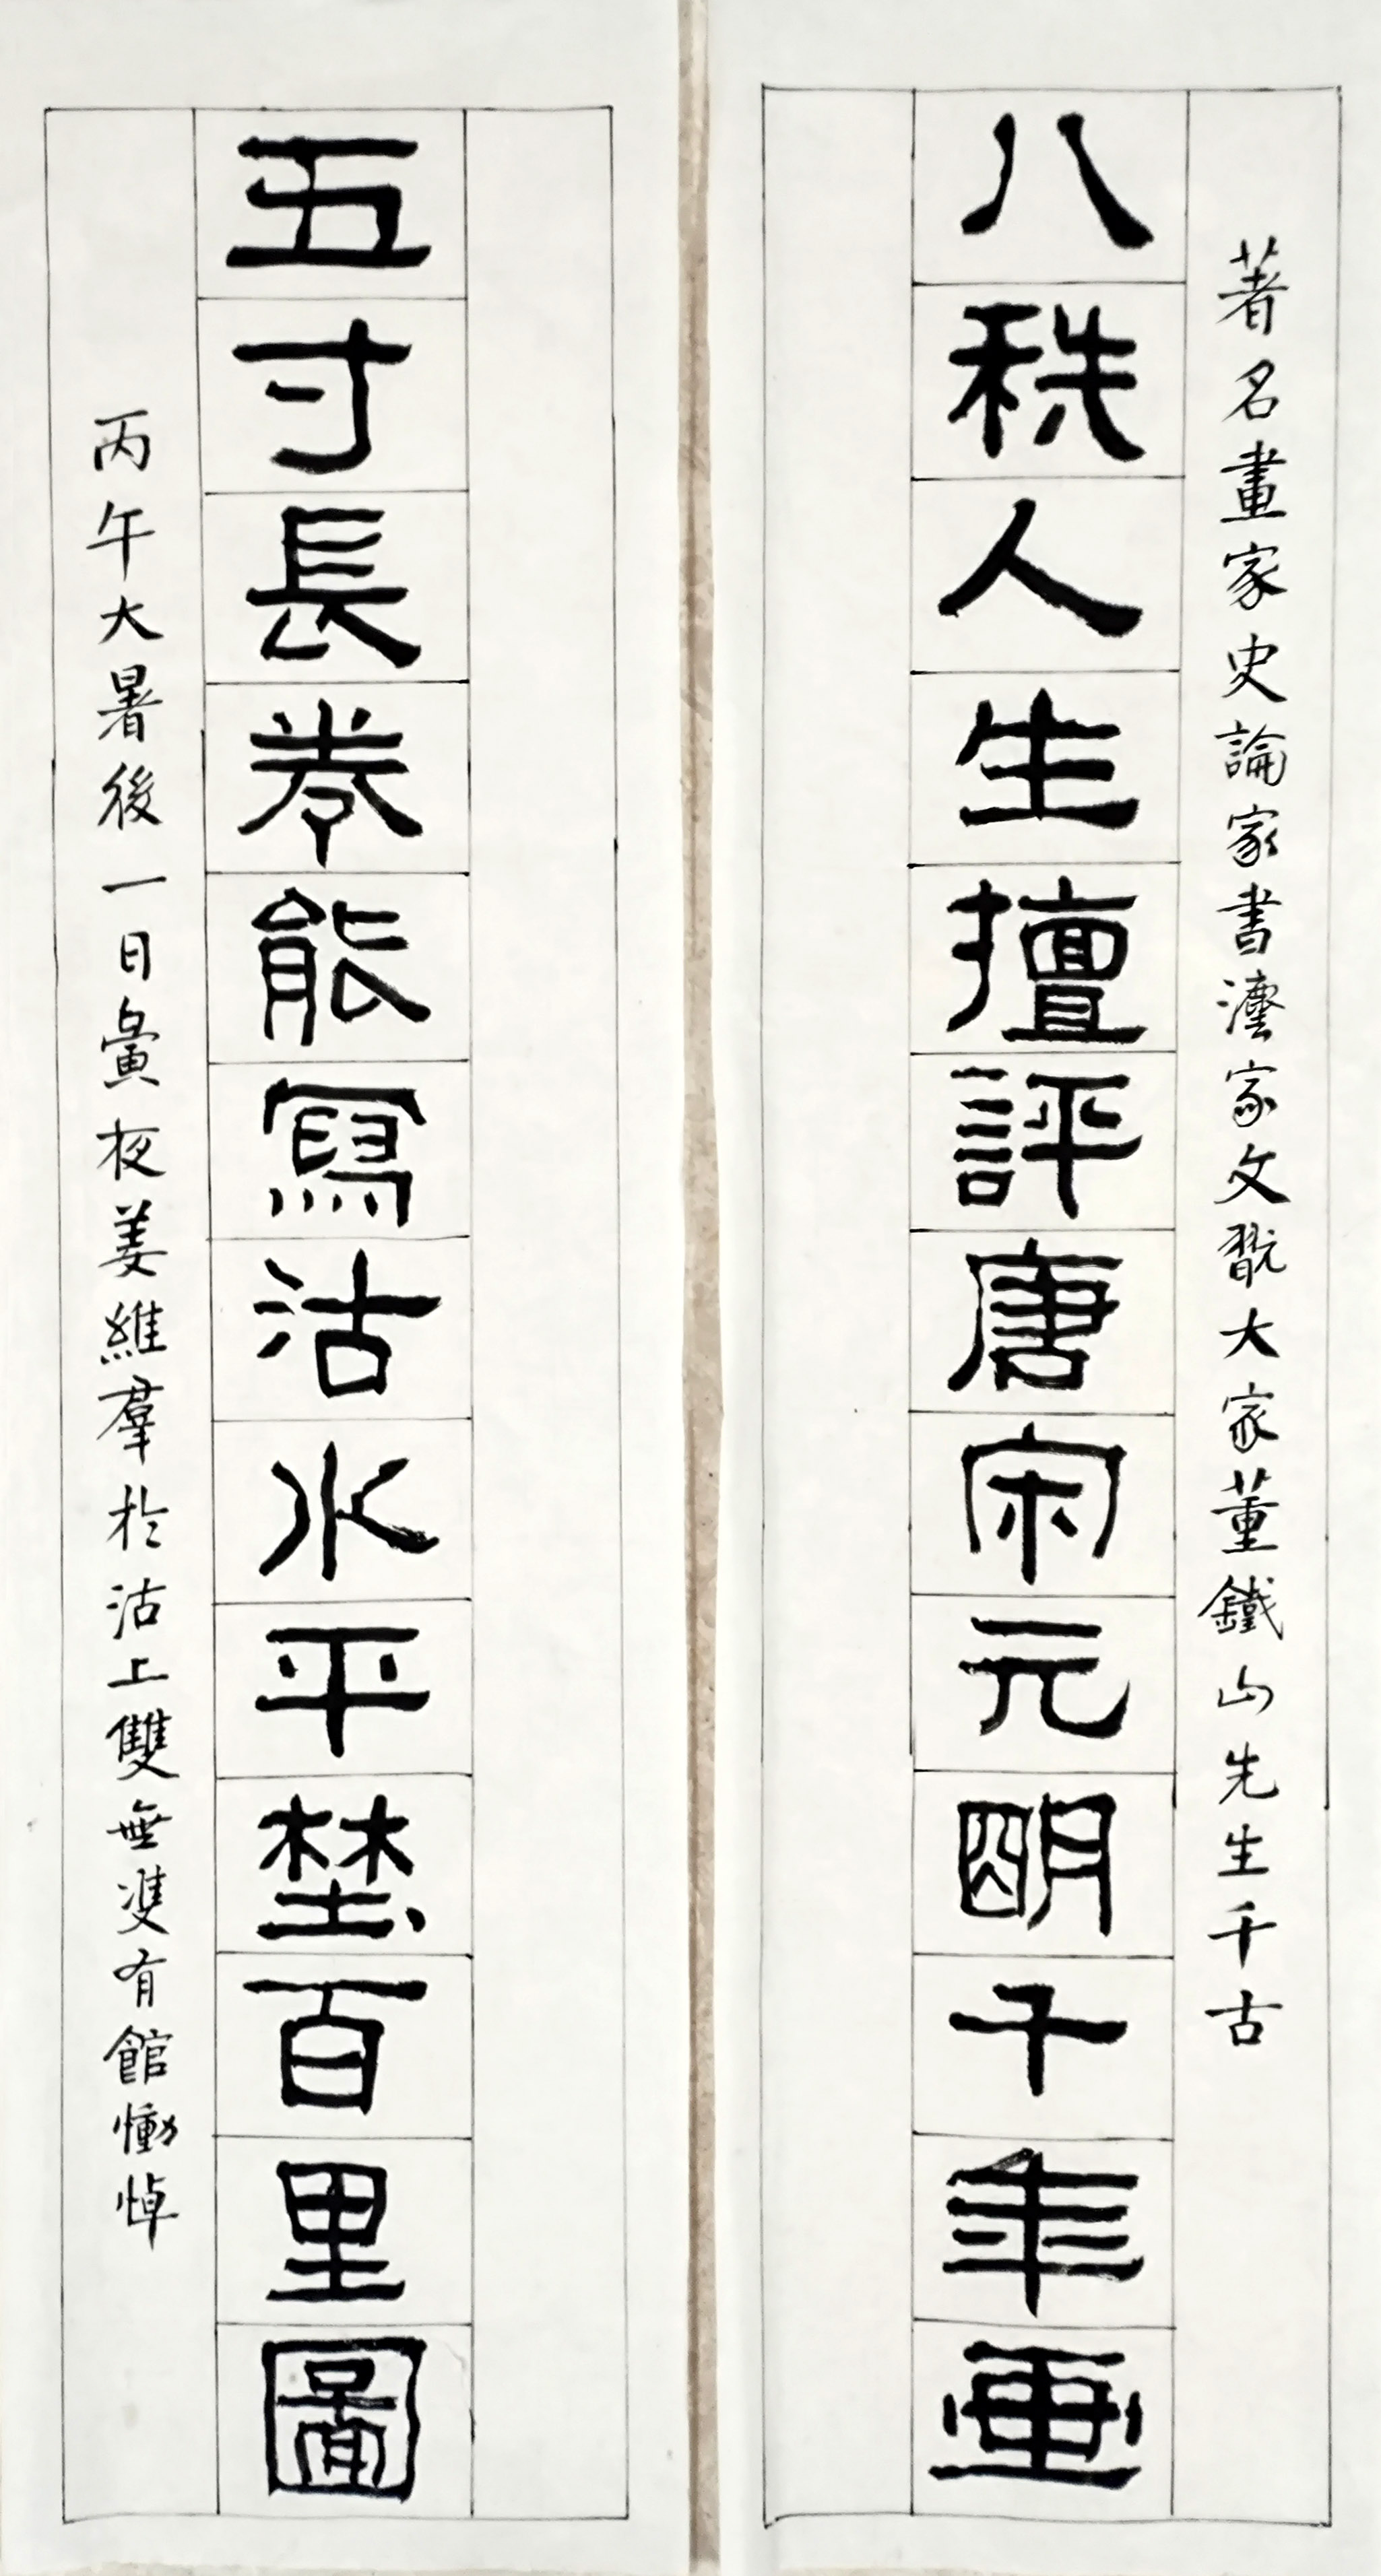 著名畫家史論家書灋家文翫大家董鐵山先生千古
八秩人生擅評唐宋元朙千年畫
五寸長卷能寫沽水平埜百里圖
丙午大暑後一日夤夜姜維羣於沽上雙無雙有館慟悼